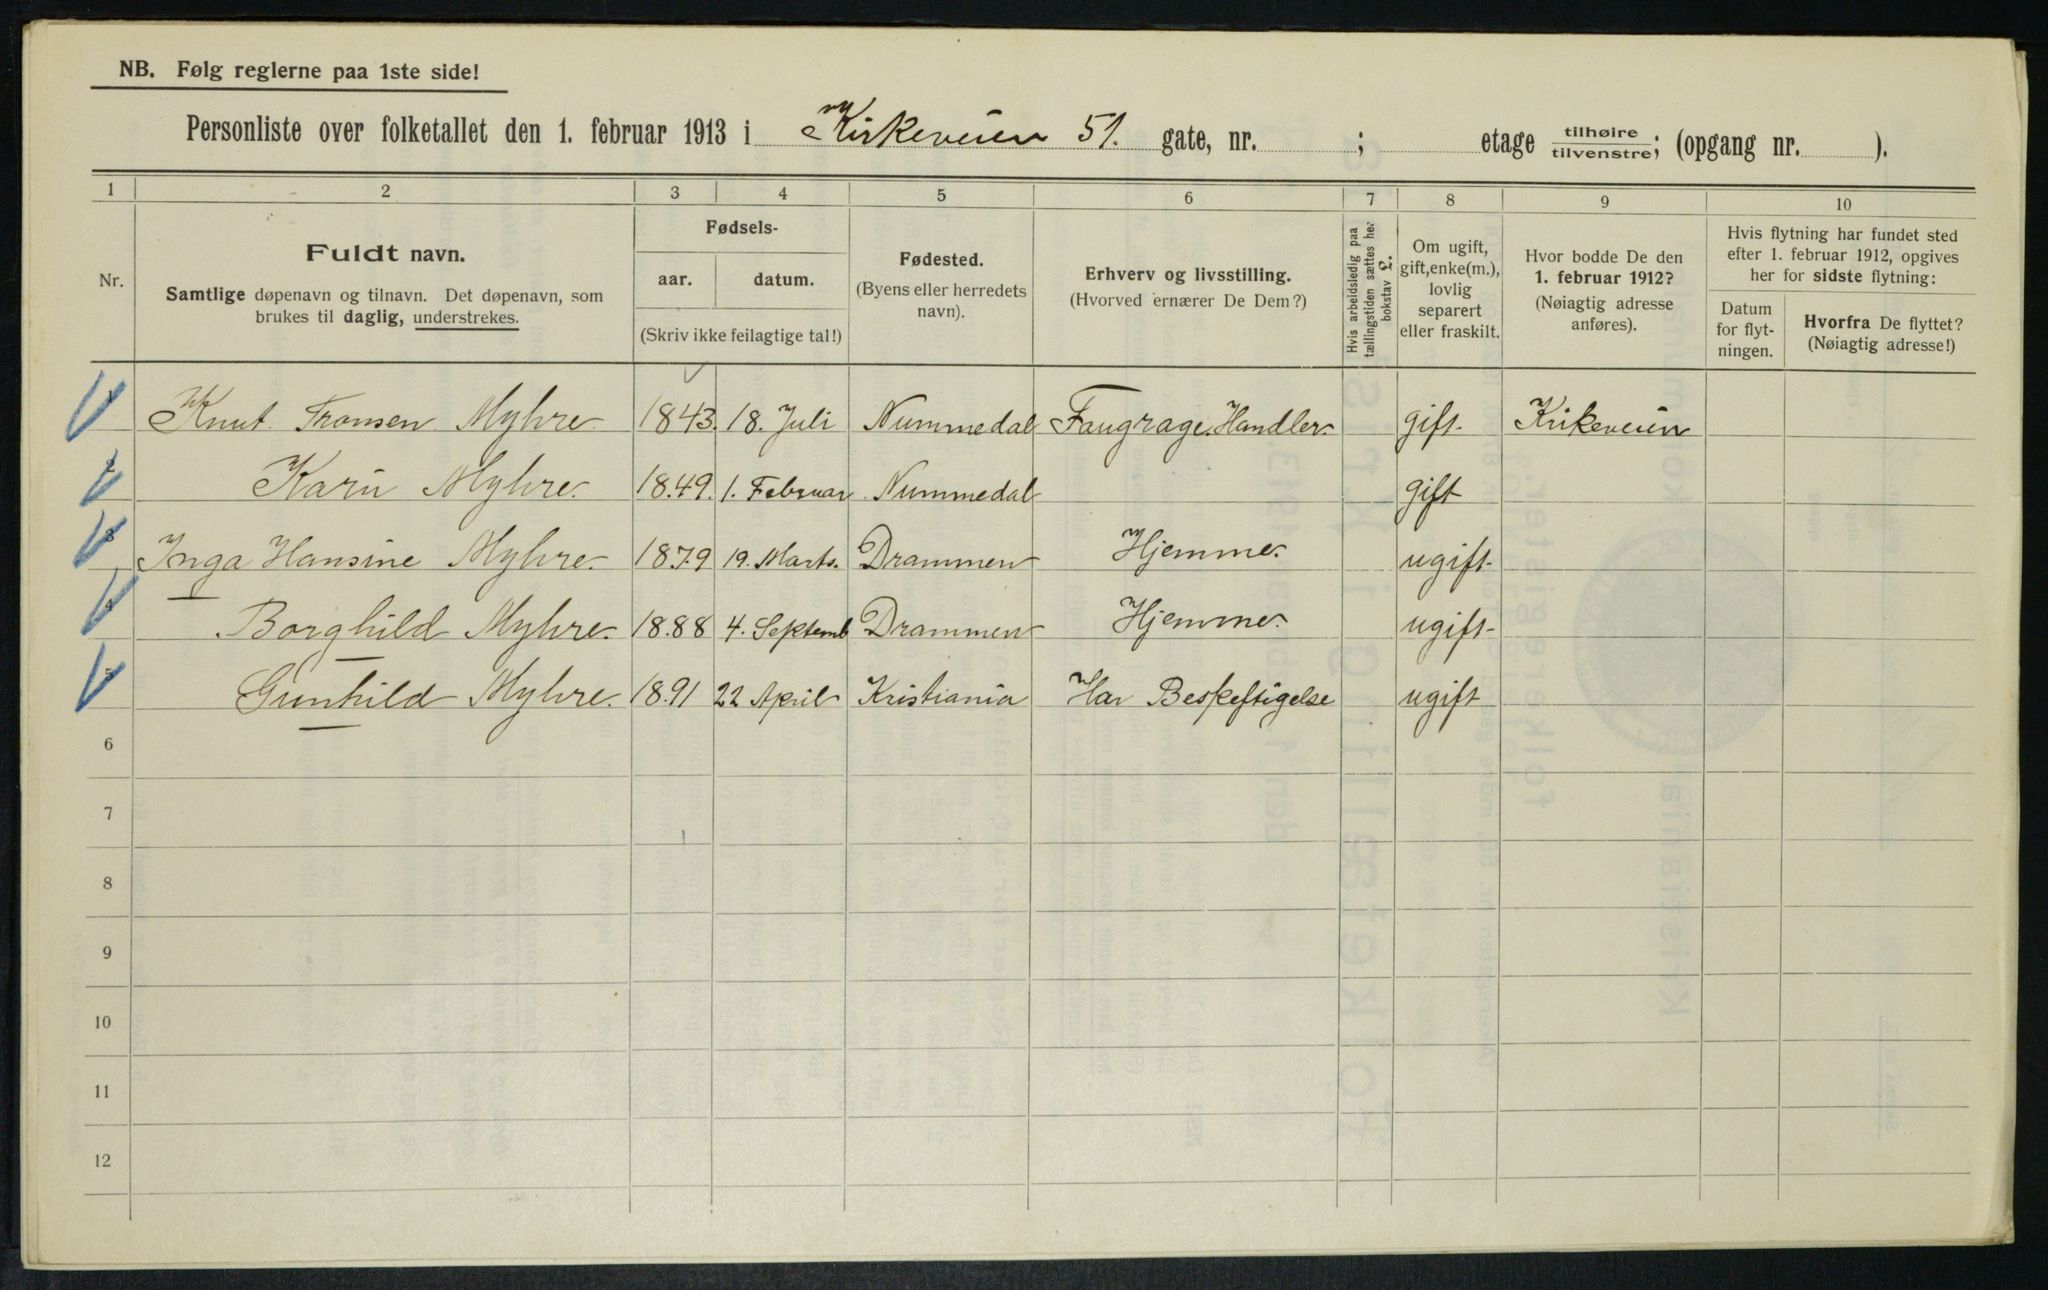 NB. Følg reglerne paa 1ste side!
Personliste over folketallet den 1. februar 1913 i Kirkeveien 51. gate, nr. ; etage tilhøire/tilvenstre; (opgang nr. ).
1 2 3 4 5 6 7 8 9 10
Nr.
Fuldt navn.
Samtlige døpenavn og tilnavn. Det døpenavn, som
brukes til daglig, understrekes.
Fødsels-
aar. datum.
(Skriv ikke feilagtige tal!)
Fødested.
(Byens eller herredets
navn).
Erhverv og livsstilling.
(Hvorved ernærer De Dem?)
Hvis arbeidsledig paa
tællingstiden sættes her
bokstav L.
Om ugift,
gift, enke(m.),
lovlig
separert
eller fraskilt.
Hvor bodde De den
1. februar 1912?
(Nøiagtig adresse
anføres).
Hvis flytning har fundet sted
efter 1. februar 1912, opgives
her for sidste flytning:
Datum
for flyt-
ningen.
Hvorfra De flyttet?
(Nøiagtig adresse!)
1 Knut Tronsen Myhre. 1843. 18. Juli Nummedal Faugrage Handler. gift. Kirkeveien
2 Kari Myhre. 1849. 1. Februar Nummedal gift
3 Inga Hansine Myhre. 1879 19. Marts. Drammen Hjemme. ugift.
4 Borghild Myhre. 1888 4. Septemb Drammen Hjemme. ugift.
5 Gunhild Myhre. 1891 22 April Kristiania Har Beskeftigelse ugift
6
7
8
9
10
11
12